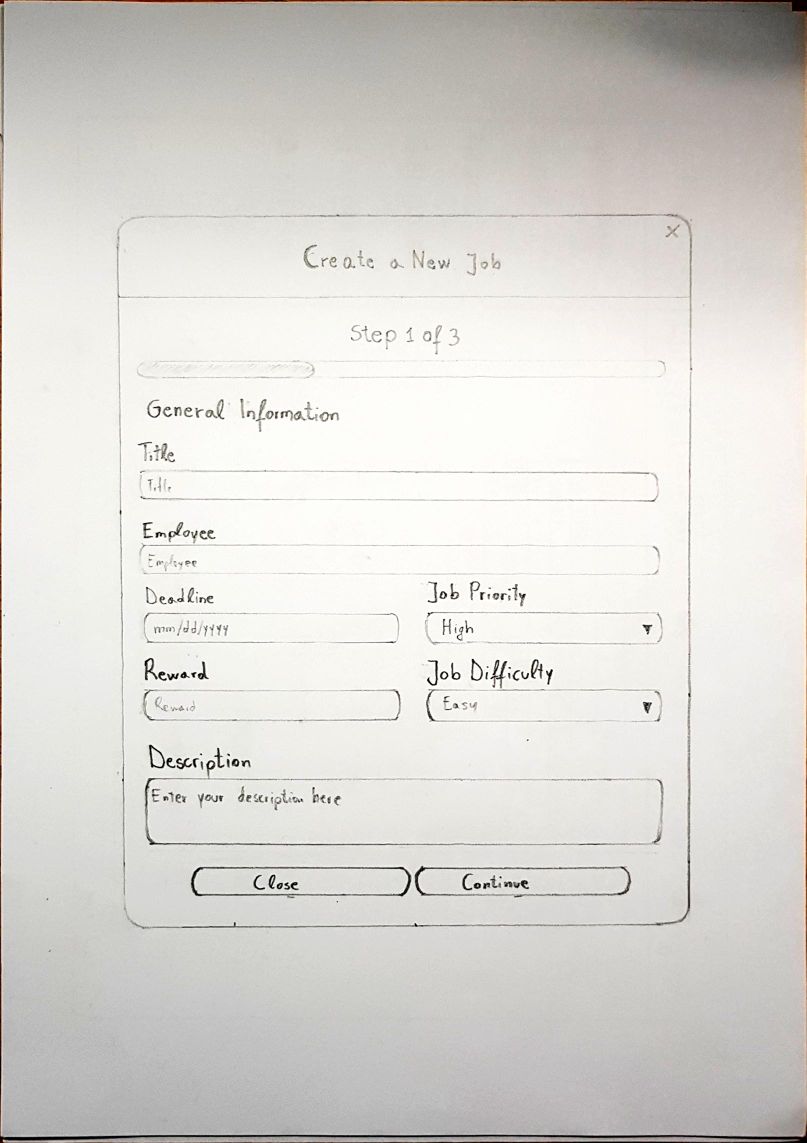 X
Create a New Job
Step 1 of 3
General Information
Title
Title
Employee
Employee
Deadline
Job Priority
mm/dd/yyyy
High
Reward
Job Difficulty
Reward
Easy
Description
Enter your description here
Close
Continue